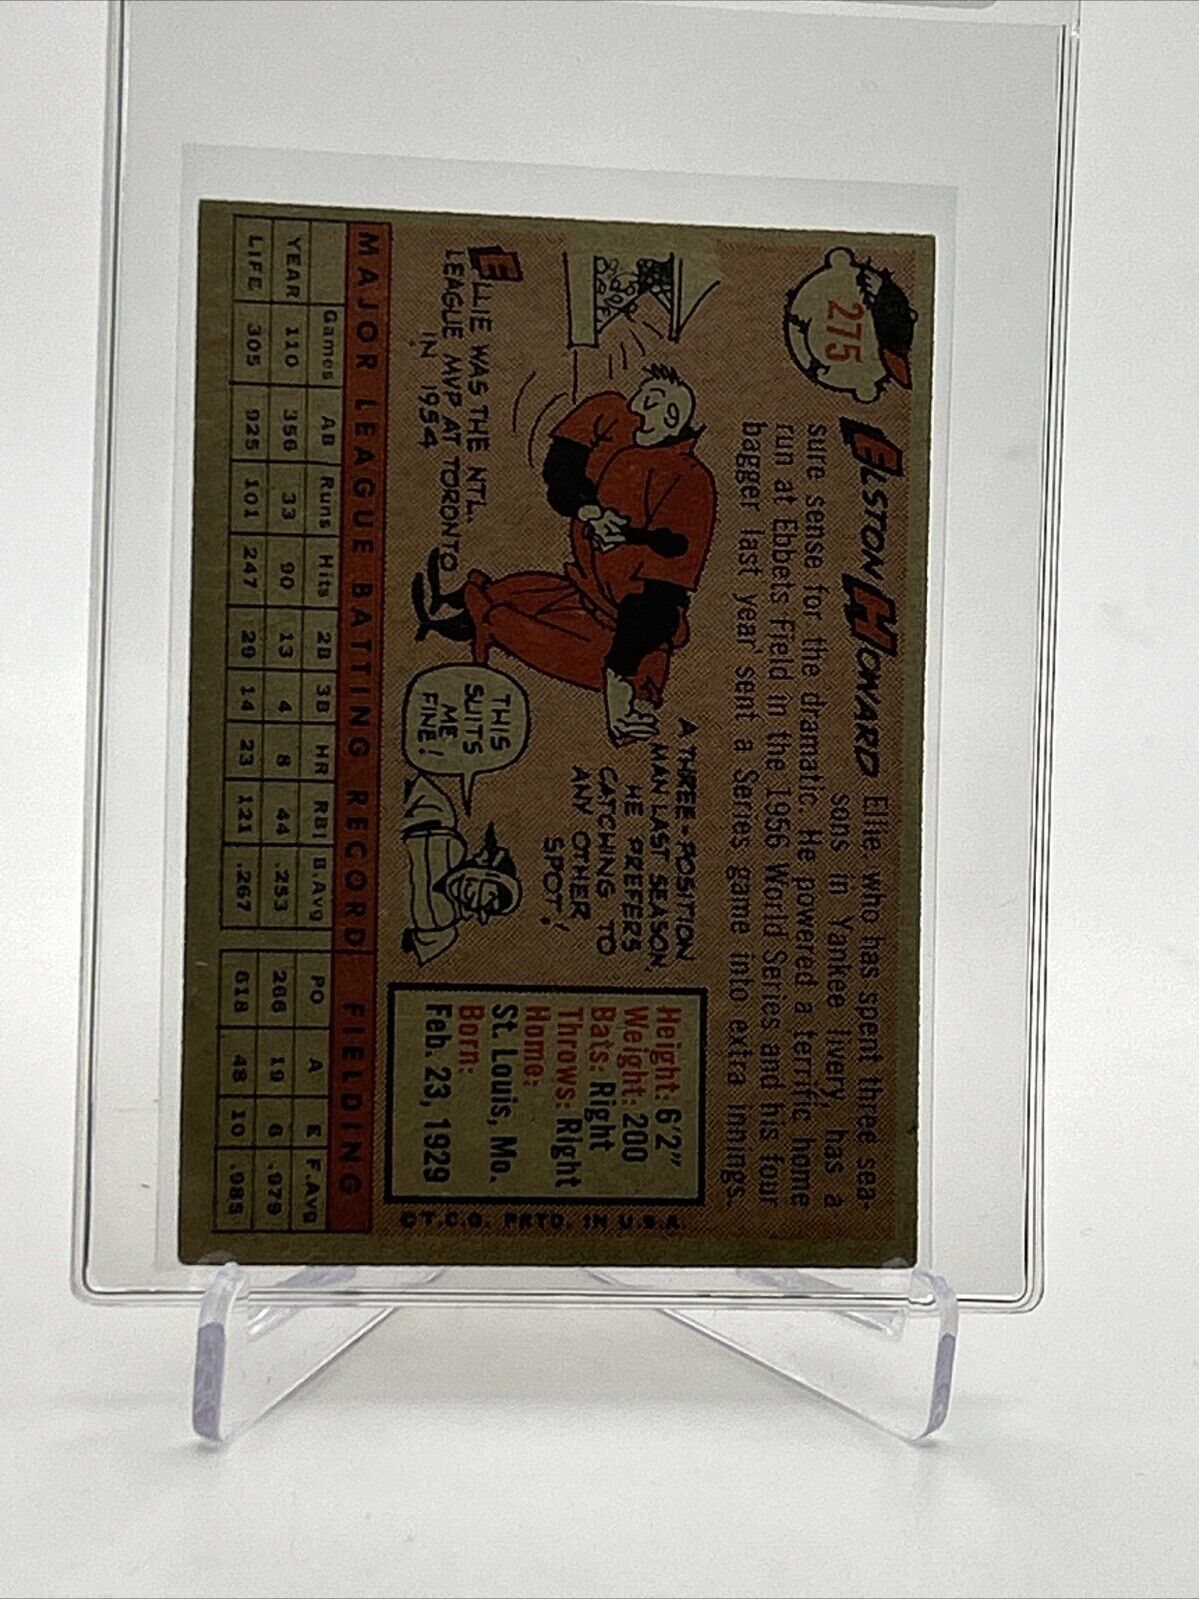 275
ELSTON HOWARD
Ellie, who has spent three sea-
sons in Yankee livery, has a
sure sense for the dramatic. He powered a terrific home
run at Ebbets Field in the 1956 World Series and his four
bagger last year sent a Series game into extra innings.
ELLIE WAS THE NTL.
LEAGUE MVP AT TORONTO
IN 1954
A THREE-POSITION
MAN LAST SEASON,
HE PREFERS
CATCHING TO
ANY OTHER
SPOT!
THIS
SUITS
ME
FINE!
Height: 6'2"
Weight: 200
Bats: Right
Throws: Right
Home:
St. Louis, Mo.
Born:
Feb. 23, 1929
©T.C.G. PRTD. IN U.S.A.
MAJOR LEAGUE BATTING RECORD FIELDING
Games AB Runs Hits 2B 3B HR RBI B.Avg PO A E F.Avg
YEAR 110 356 33 90 13 4 8 44 .253 266 19 6 .979
LIFE 305 925 101 247 29 14 23 121 .267 618 48 10 .985